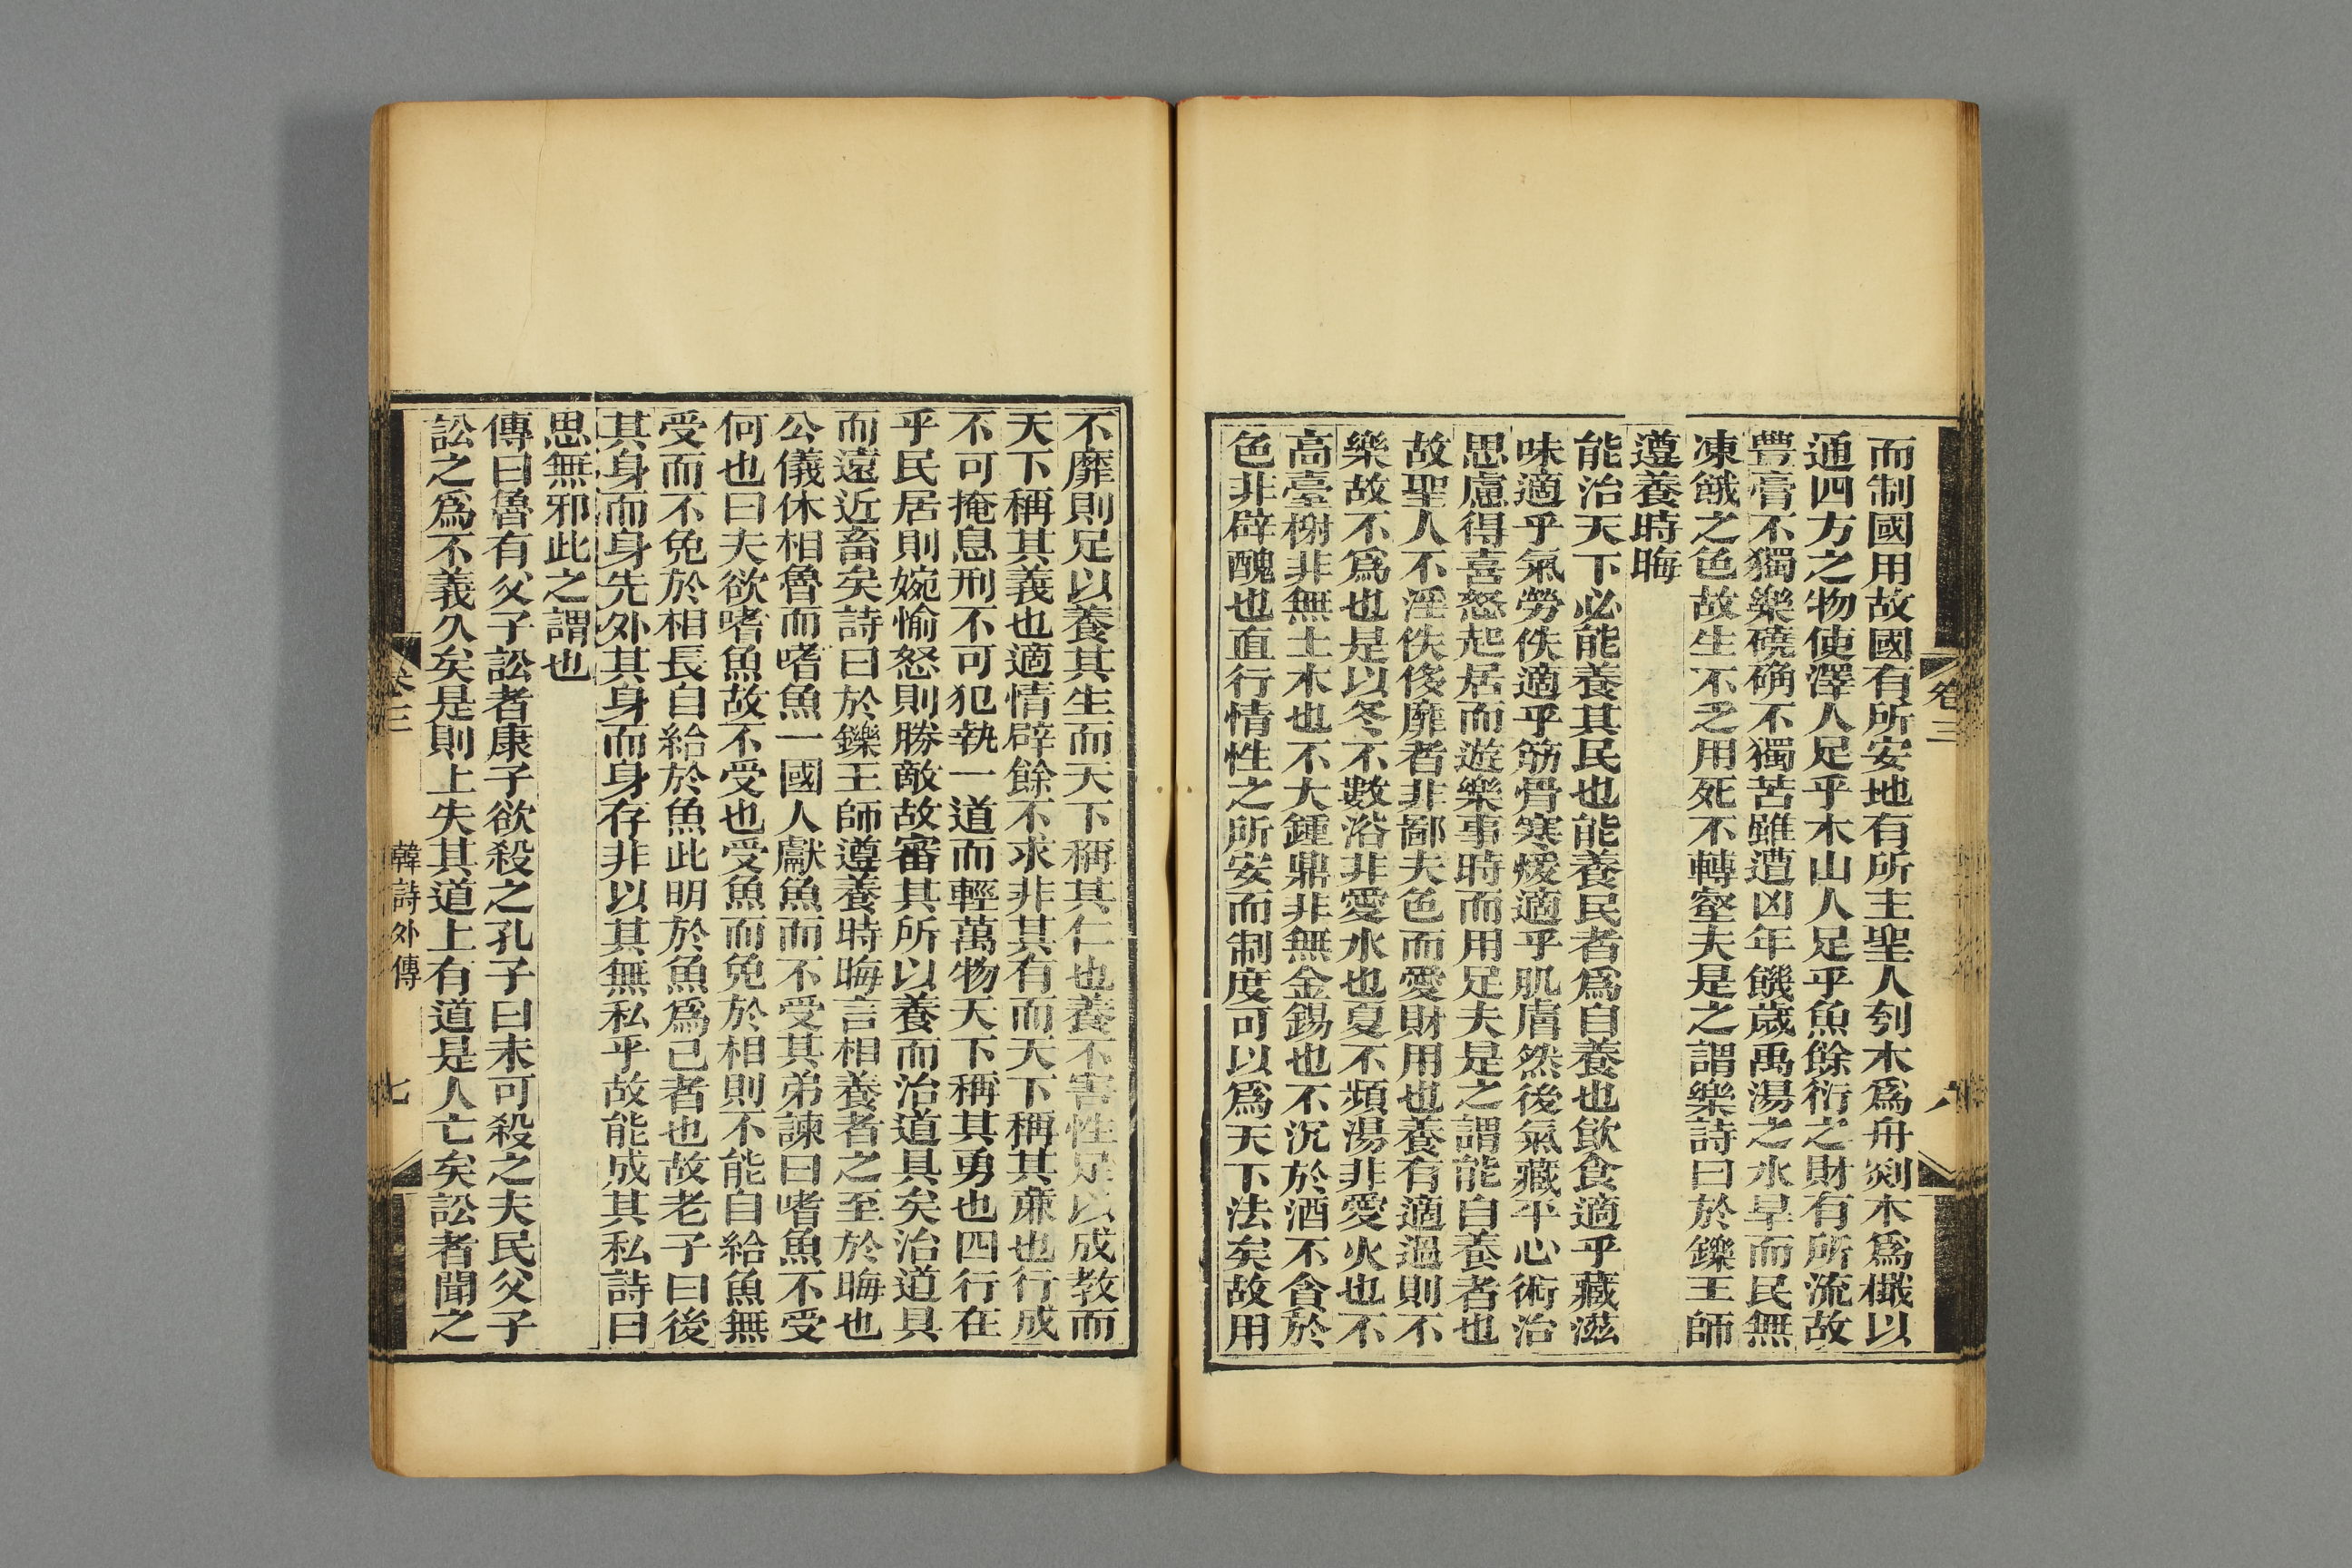 而制國用故國有所安地有所主聖人刳木爲舟剡木爲檝以
通四方之物使澤人足乎木山人足乎魚餘衍之財有所流故
豐膏不獨樂磽确不獨苦雖遭凶年饑歲禹湯之水旱而民無
凍餓之色故生不乏用死不轉壑夫是之謂樂詩曰於鑠王師
遵養時晦
能治天下必能養其民也能養民者爲自養也飲食適乎藏滋
味適乎氣勞佚適乎筋骨寒煖適乎肌膚然後氣藏平心術治
思慮得喜怒起居而遊樂事時而用足夫是之謂能自養者也
故聖人不淫佚侈靡者非鄙夫色而愛財用也養有適過則不
樂故不爲也是以冬不數浴非愛水也夏不頻湯非愛火也不
高臺榭非無土木也不大鍾鼎非無金錫也不沉於酒不貪於
色非辟醜也直行情性之所安而制度可以爲天下法矣故用
卷三
八
不靡則足以養其生而天下稱其仁也養不害性足以成教而
天下稱其義也適情辟餘不求非其有而天下稱其廉也行成
不可掩息刑不可犯執一道而輕萬物天下稱其勇也四行在
乎民居則婉愉怒則勝敵故審其所以養而治道具矣治道具
而遠近畜矣詩曰於鑠王師遵養時晦言相養者之至於晦也
公儀休相魯而嗜魚一國人獻魚而不受其弟諫曰嗜魚不受
何也曰夫欲嗜魚故不受也受魚而免於相則不能自給魚無
受而不免於相長自給於魚此明於魚爲己者也故老子曰後
其身而身先外其身而身存非以其無私乎故能成其私詩曰
思無邪此之謂也
傳曰魯有父子訟者康子欲殺之孔子曰未可殺之夫民父子
訟之爲不義久矣是則上失其道上有道是人亡矣訟者聞之
卷三
韓詩外傳
七